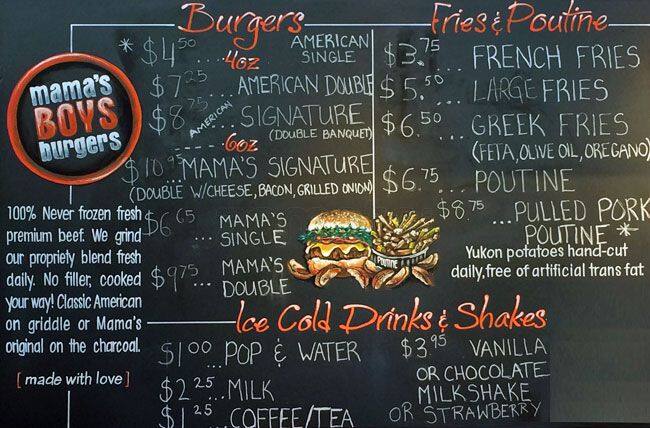 Burgers
* $4.50 ....4oz AMERICAN SINGLE
$7.25....AMERICAN DOUBLE
$8.75 AMERICAN SIGNATURE
(DOUBLE BANQUET)
----6oz
$10.95 MAMA'S SIGNATURE
(DOUBLE W/CHEESE, BACON, GRILLED ONION)
$6.65 ... MAMA'S SINGLE
$9.75 ... MAMA'S DOUBLE
mama's
BOYS
burgers
100% Never frozen fresh
premium beef. We grind
our propriety blend fresh
daily. No filler, cooked
your way! Classic American
on griddle or Mama's
original on the charcoal.
[ made with love ]
Fries & Poutine
$3.75 ... FRENCH FRIES
$5.50 ... LARGE FRIES
$6.50 ... GREEK FRIES
(FETA, OLIVE OIL, OREGANO)
$6.75 ... POUTINE
$8.75 ...PULLED PORK
POUTINE *
Yukon potatoes hand-cut
daily, free of artificial trans fat
POUTINE
Ice Cold Drinks & Shakes
$1.00 ... POP & WATER
$2.25 ... MILK
$1.25 ... COFFEE/TEA
$3.95 VANILLA
OR CHOCOLATE
MILKSHAKE
OR STRAWBERRY